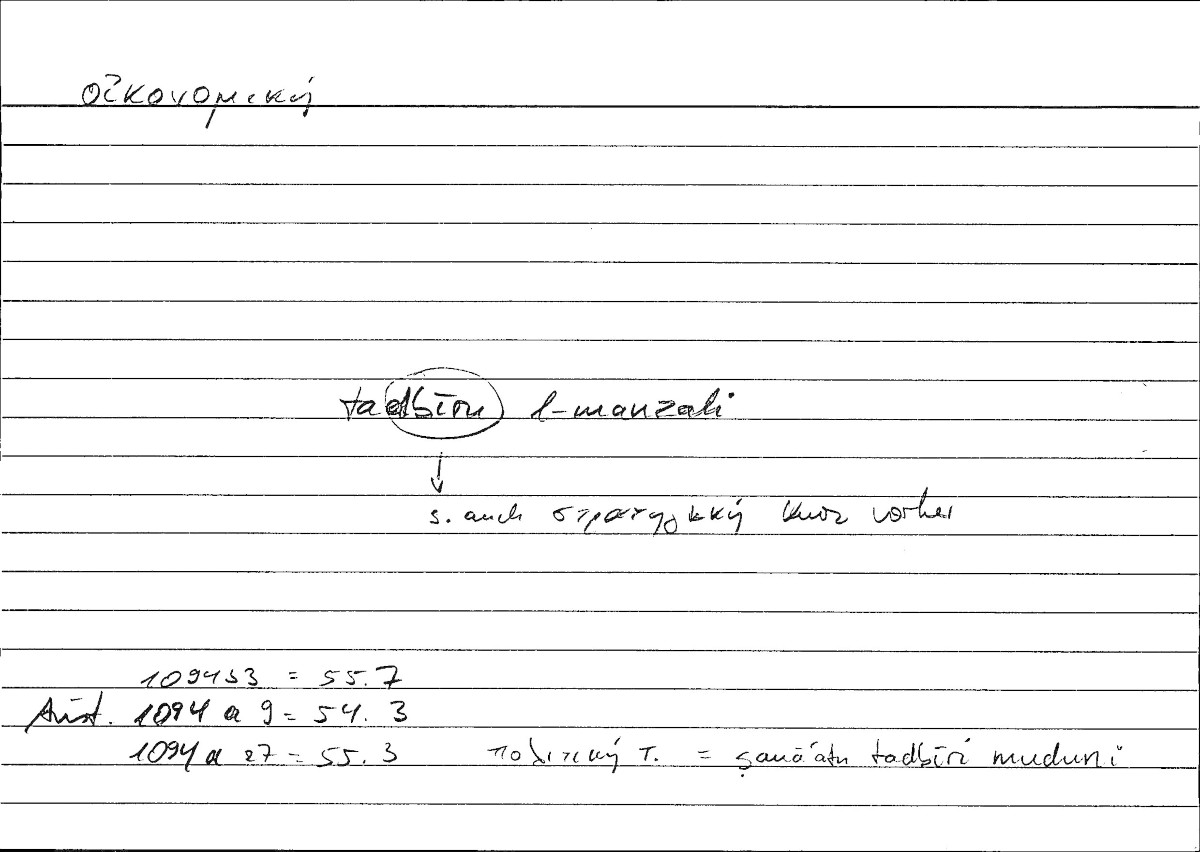 οἰκονομική
tadbīru l-manzali
↓
s. auch στρατηγική kurz vorher
1094b3 = 55.7
Arist. 1094 a 9 = 54. 3
1094 a 27 = 55. 3 πολιτική τ. = ṣanāʿatu tadbīri muduni